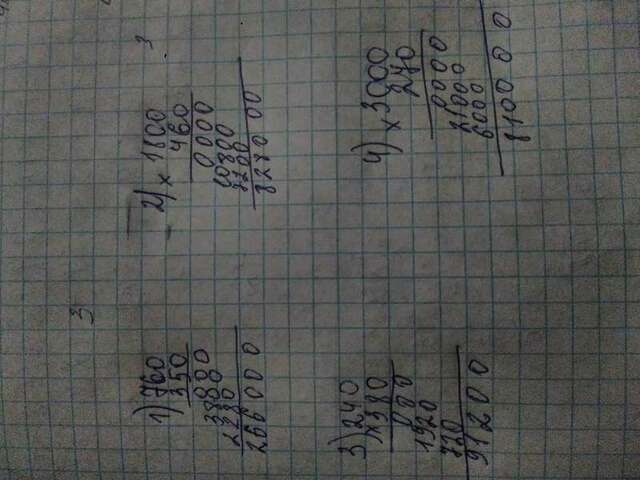 3
1) 760
350
000
3800
2280
266000
2) × 1800
460
0000
10800
7200
828000
3
3) 240
×380
000
1920
720
91200
4) × 3000
270
0000
21000
6000
810000